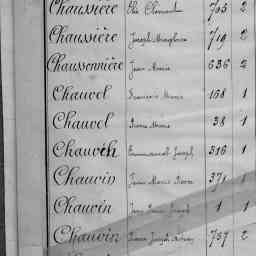 Chaussière Elie Clément 705 2
Chaussière Joseph 719 2
Chaussonnière Jean Marie 636 2
Chauvel Marie 168 1
Chauvel Pierre Marie 38 1
Chauvin Emmanuel Joseph 316 1
Chauvin Jean Marie Pierre 371 1
Chauvin Jean Joseph 1 1
Chauvin Pierre Joseph 737 2